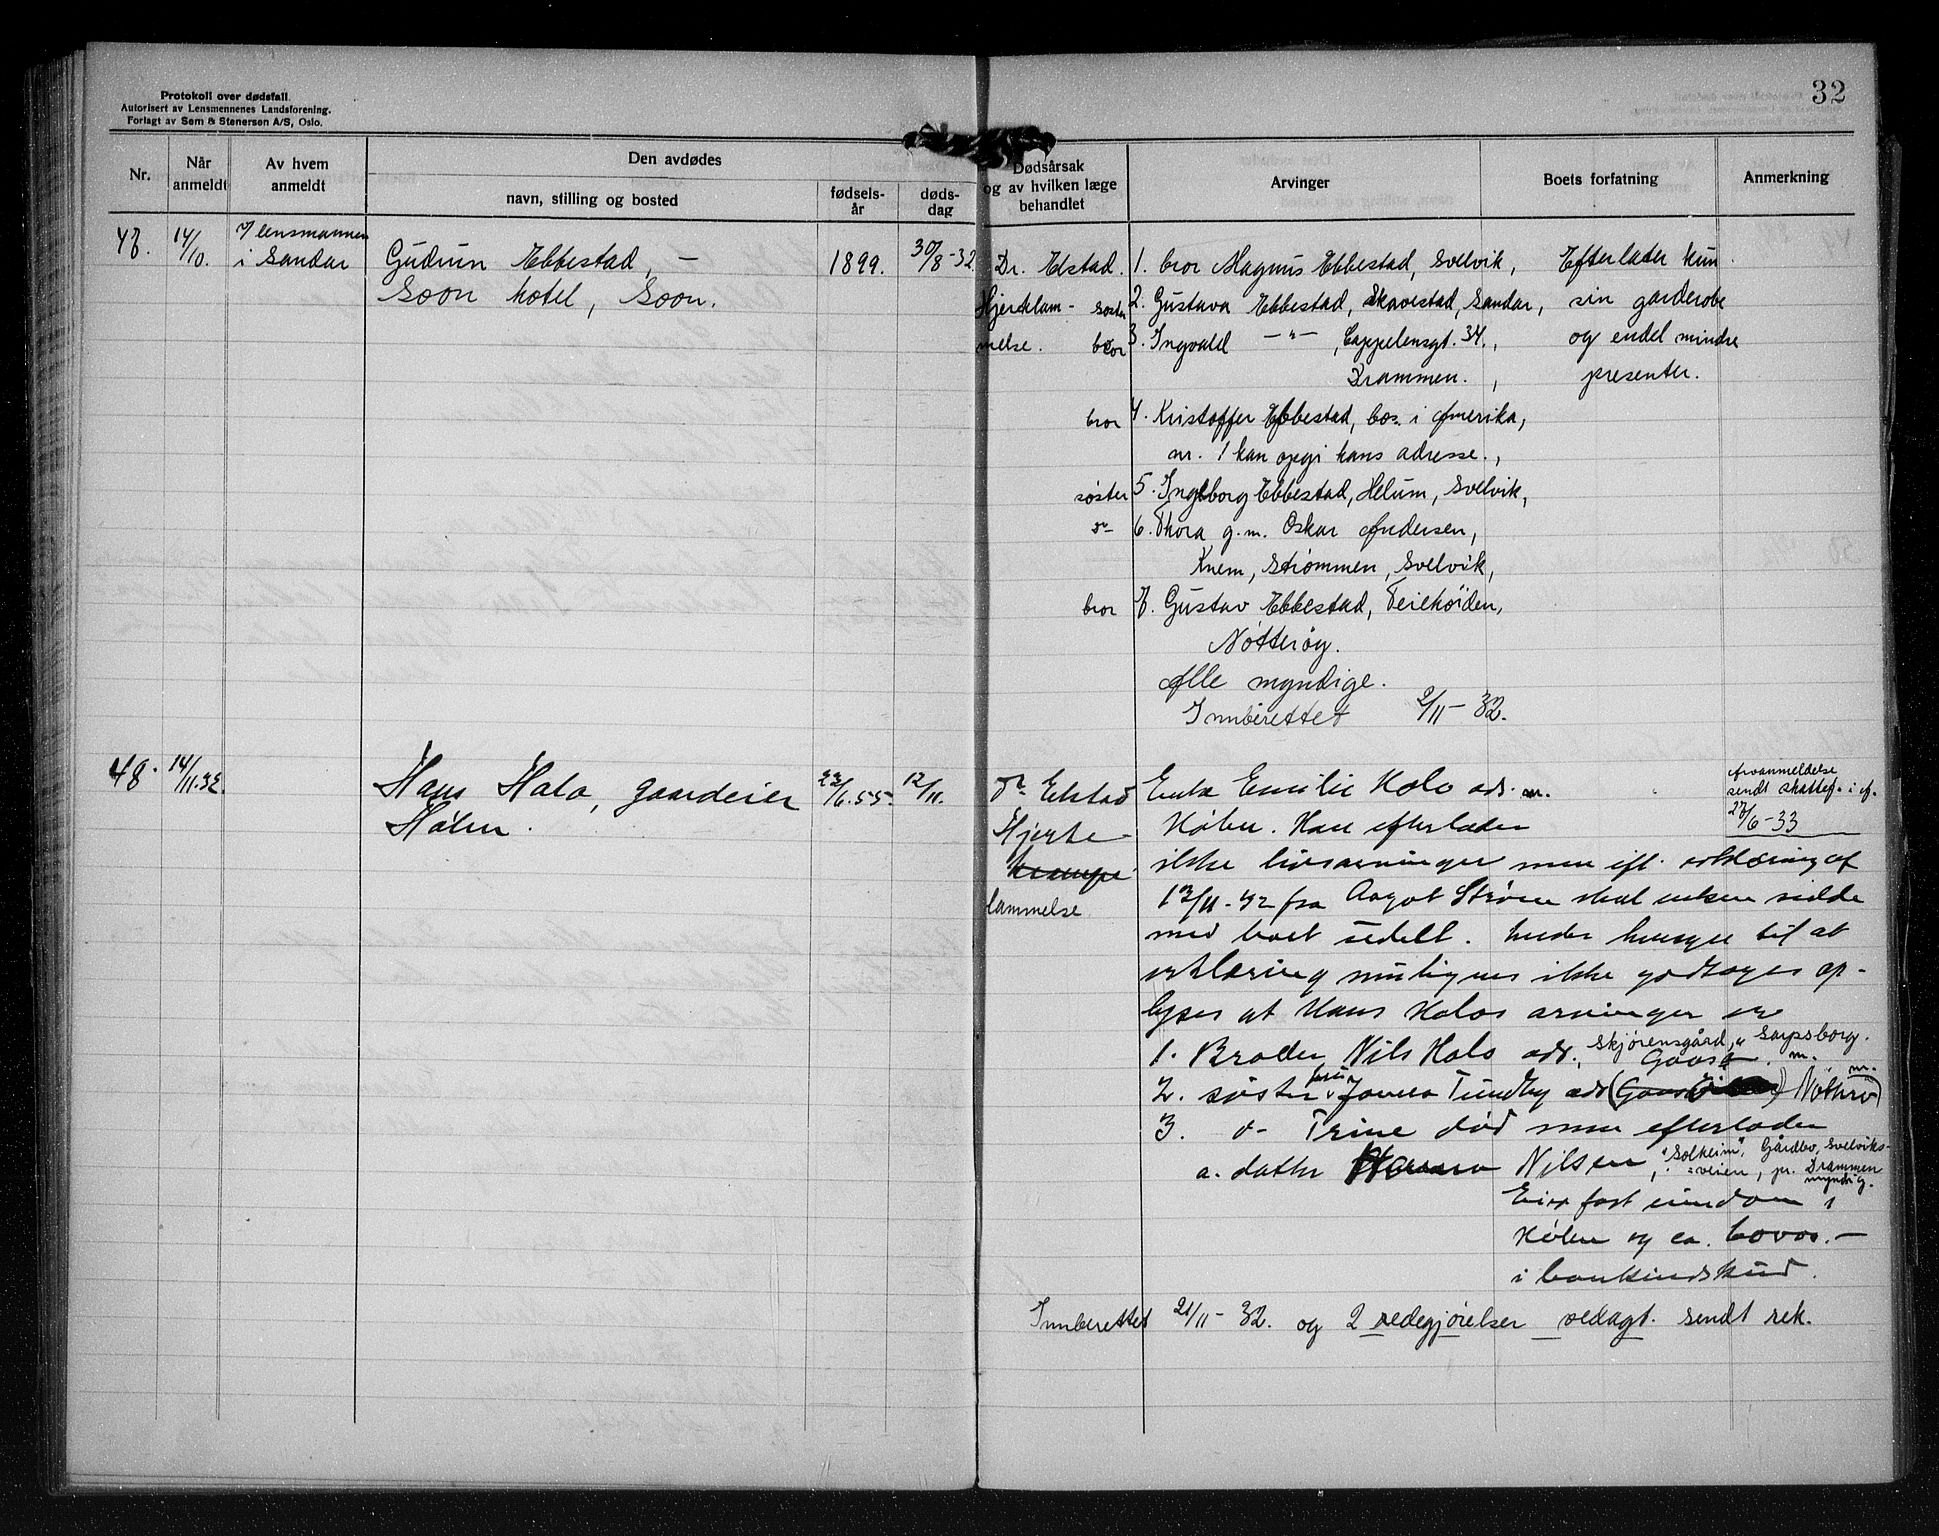 Protokoll over dødsfall.
Autorisert av Lensmennenes Landsforening.
Forlagt av Sem & Stenersen A/S, Oslo.
32
Nr.
Når anmeldt
Av hvem anmeldt
Den avdødes
navn, stilling og bosted
fødsels-år
døds-dag
Dødsårsak og av hvilken læge behandlet
Arvinger
Boets forfatning
Anmerkning
47.
14/10.
lensmannen
i Sandar
Gudrun Ebbestad, —
Soon hotel, Soon.
1899.
30/8-32
Dr. Elstad.
Hjerteklam-
melse.
1. bror Magnus Ebbestad, Svelvik,
søster 2. Gustava Ebbestad, Skavestad, Sandar,
bror 3. Ingvald —"— , Cappelensgt. 34.,
Drammen. ,
bror 4. Kristoffer Ebbestad, bos. i Amerika,
nr. 1 kan opgi hans adresse.,
søster 5. Ingeborg Ebbestad, Helum, Svelvik,
6. Thora g.m. Oskar Andersen,
Knem, Strømmen, Svelvik,
bror 7. Gustav Ebbestad, Teiehøiden,
Nøtterøy.
Alle myndige.
Innberettet 2/11-32.
Efterlater kun
sin garderobe
og endel mindre
presenter.
48.
14/11.32.
Hans Holo, gaardeier
Hølen.
22/6.55.
12/11.
Dr Elstad
Hjerte
krampe
lammelse
Enke Emilie Holo adr. m.
Hølen. Han efterlader
ikke livsarvinger men ifl. erklæring af
13/11-32 fra Aagot Strøm skal enken sidde
med boet udelt. Under hensyn til at
erklæring muligens ikke godtages op-
lyses at Hans Holos arvinger er
1. Broder Nils Holo adr. Skjørensgård, Sarpsborg. m.
2. søster fru Tundby adr m.
3. d- Trine død men efterlader
a. datter Nilsen, "Solheim", Gårdbo, Svelviks-
veien, pr. Drammen
myndig.
Eier fast eiendom i
Hølen og ca. 6000.—
i bankindskud.
Arvanmeldelse
sendt skattef. i
27/6-33
Innberettet 21/11-32. og 2 redegjørelser vedlagt. sendt rek.